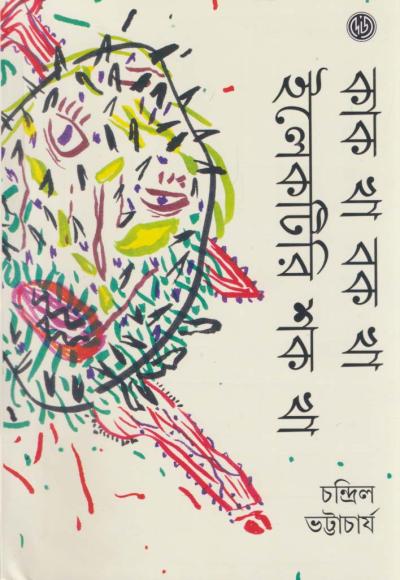 কাক খা বক খা
ইলেকটিরি শক খা
চন্দ্রিল
ভট্টাচার্য